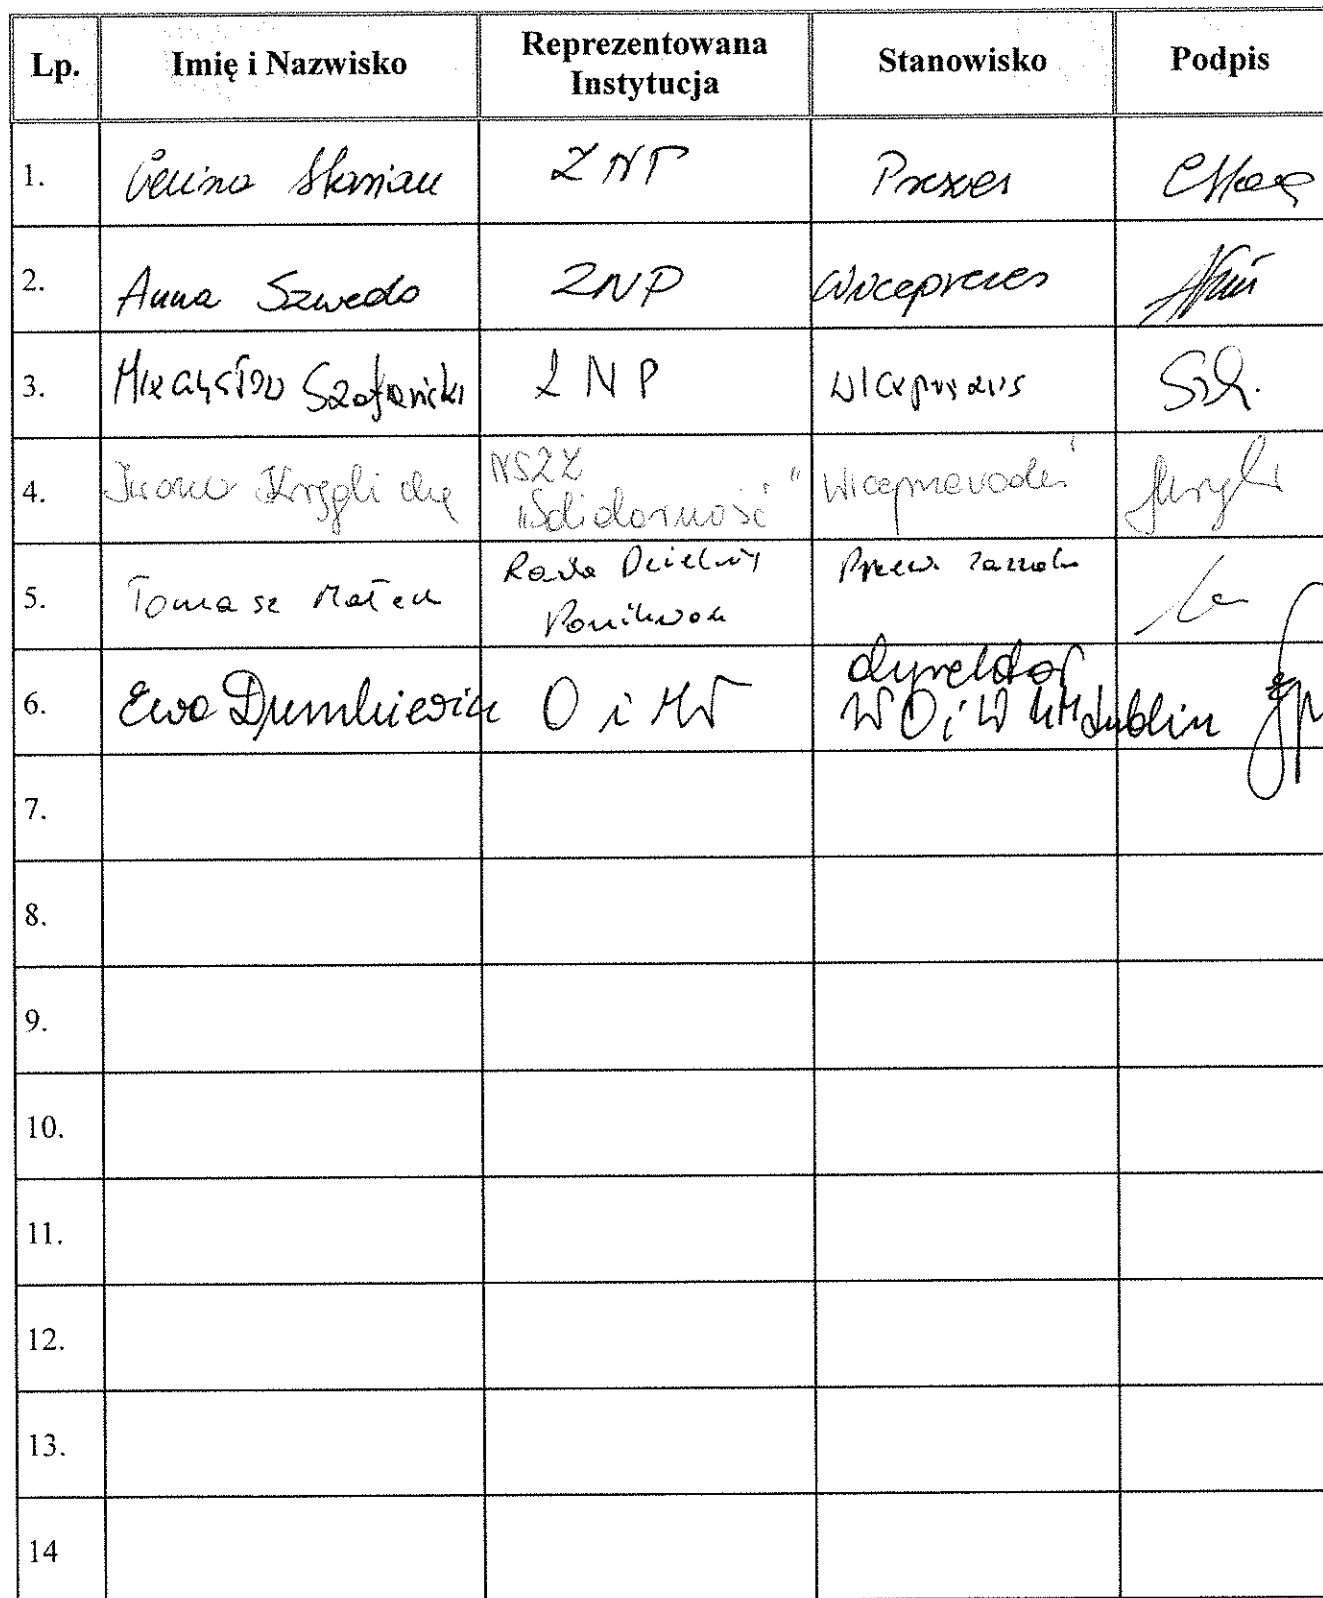 Lp. Imię i Nazwisko Reprezentowana Instytucja Stanowisko Podpis
1. Celina Stasiak ZNP Prezes
2. Anna Szwedo ZNP Wiceprezes
3. Mieczysław Szafrański ZNP Wiceprezes
4. Iwona NSZZ "Solidarność"
5. Tomasz Małek Rada Dzielnicy Ponikwoda Przew. Zarządu
6. Ewa Dumkiewicz O i W dyrektor
WO i W UM Lublin
7.
8.
9.
10.
11.
12.
13.
14